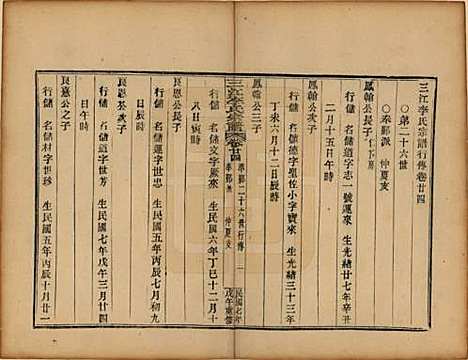 三江李氏宗譜行傳卷廿四
○第二十六世
○奉鄞派 仲夏支
鳳翰公長子 仁下房
行儲 名儲道字志一號運來 生光緒廿七年辛丑
二月十五日午時
鳳翰公次子
行儲 名儲德字聖佐小字寶來 生光緒三十三年
丁未六月十二日辰時
良恩公長子
行儲 名儲文字厥來 生民國六年丁巳十二月十
八日寅時
三江李氏宗譜 卷廿四
奉鄞派 第二十六世行傳 仲夏支 一
民國七年戊午重修
良恩公之子
行儲 名儲運字世忠 生民國五年丙辰十月初九
日辰時
良念公之子
行儲 名儲道字世芳 生民國七年戊午三月廿四
日午時
良意公之子
行儲 名儲材字世珍 生民國五年丙辰十月廿一